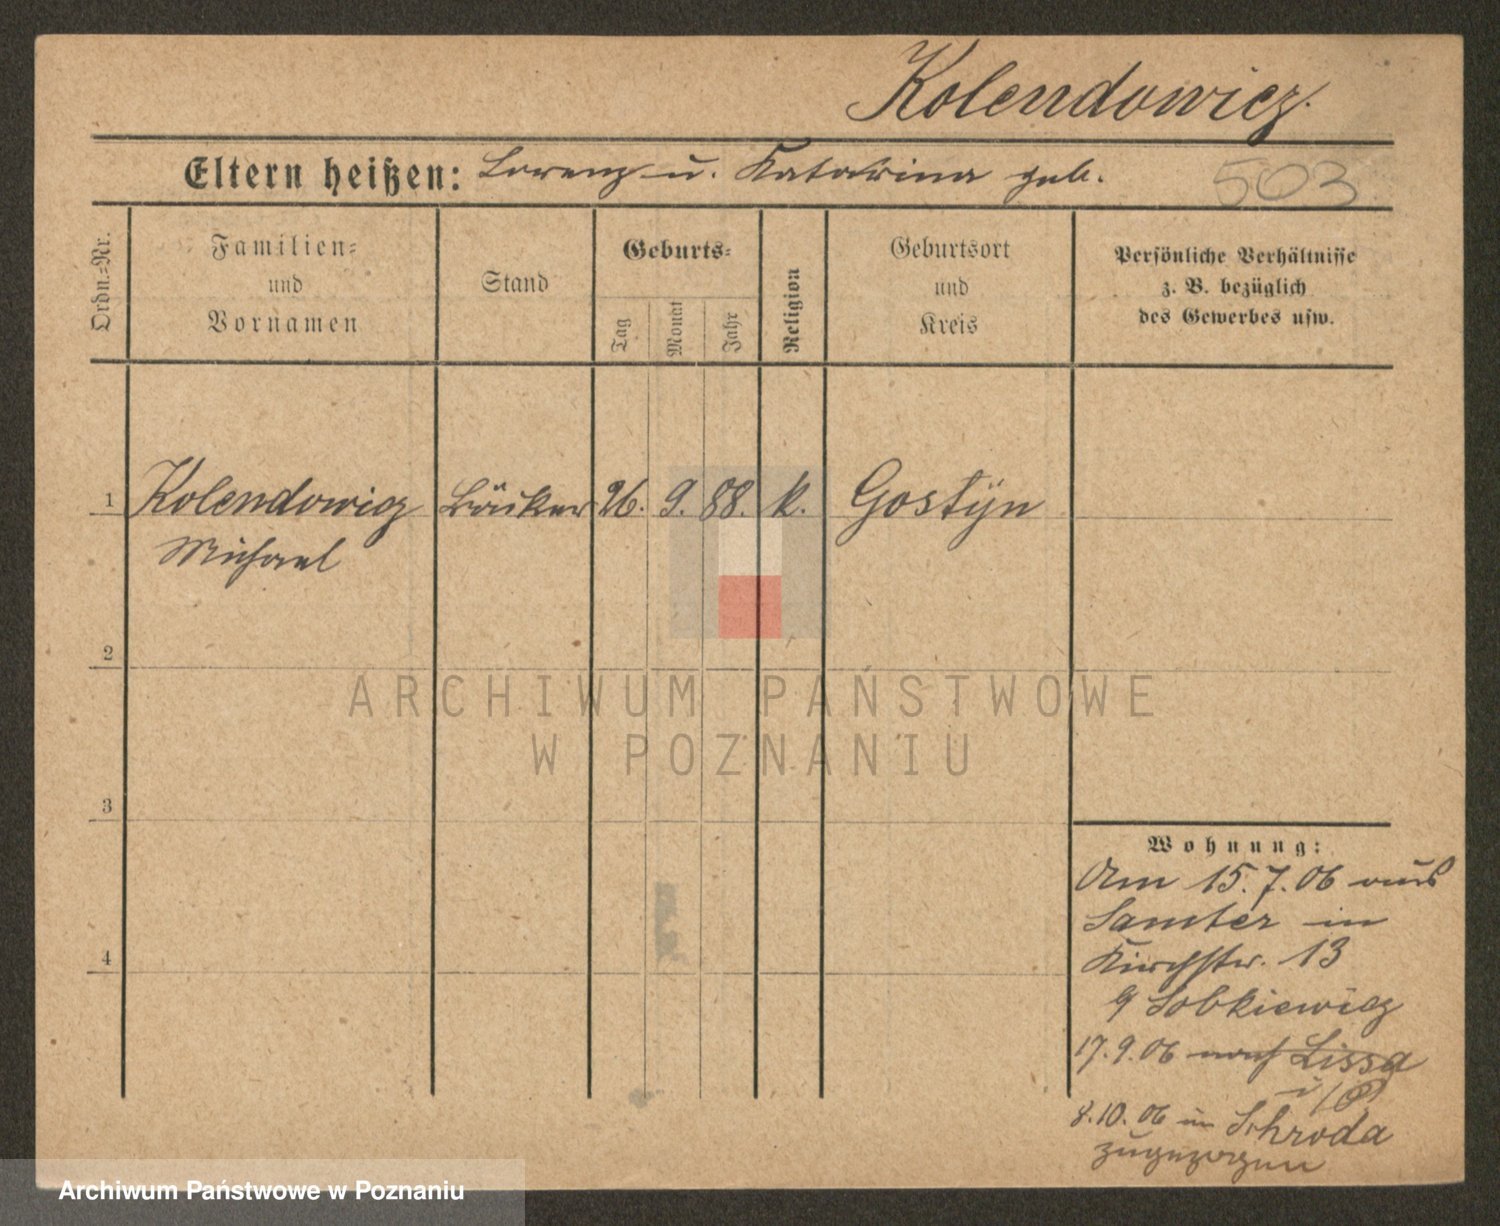 Kolendowicz.
Eltern heißen: Lorenz u. Katarina geb.
503
Ordn.=Nr.
Familien=
und
Vornamen
Stand
Geburts=
Tag
Monat
Jahr
Religion
Geburtsort
und
Kreis
Persönliche Verhältnisse
z. B. bezüglich
des Gewerbes usw.
1 Kolendowicz Bäcker 26. 9. 88. k. Gostÿn
Michael
2
ARCHIWUM PAŃSTWOWE
W POZNANIU
3
Wohnung:
Am 15.7.06 aus
Samter in
4
Kirchstr. 13
Sobkiewicz
17.9.06 nach Lissa
i/P
8.10.06 in Schroda
zugezogen
Archiwum Państwowe w Poznaniu